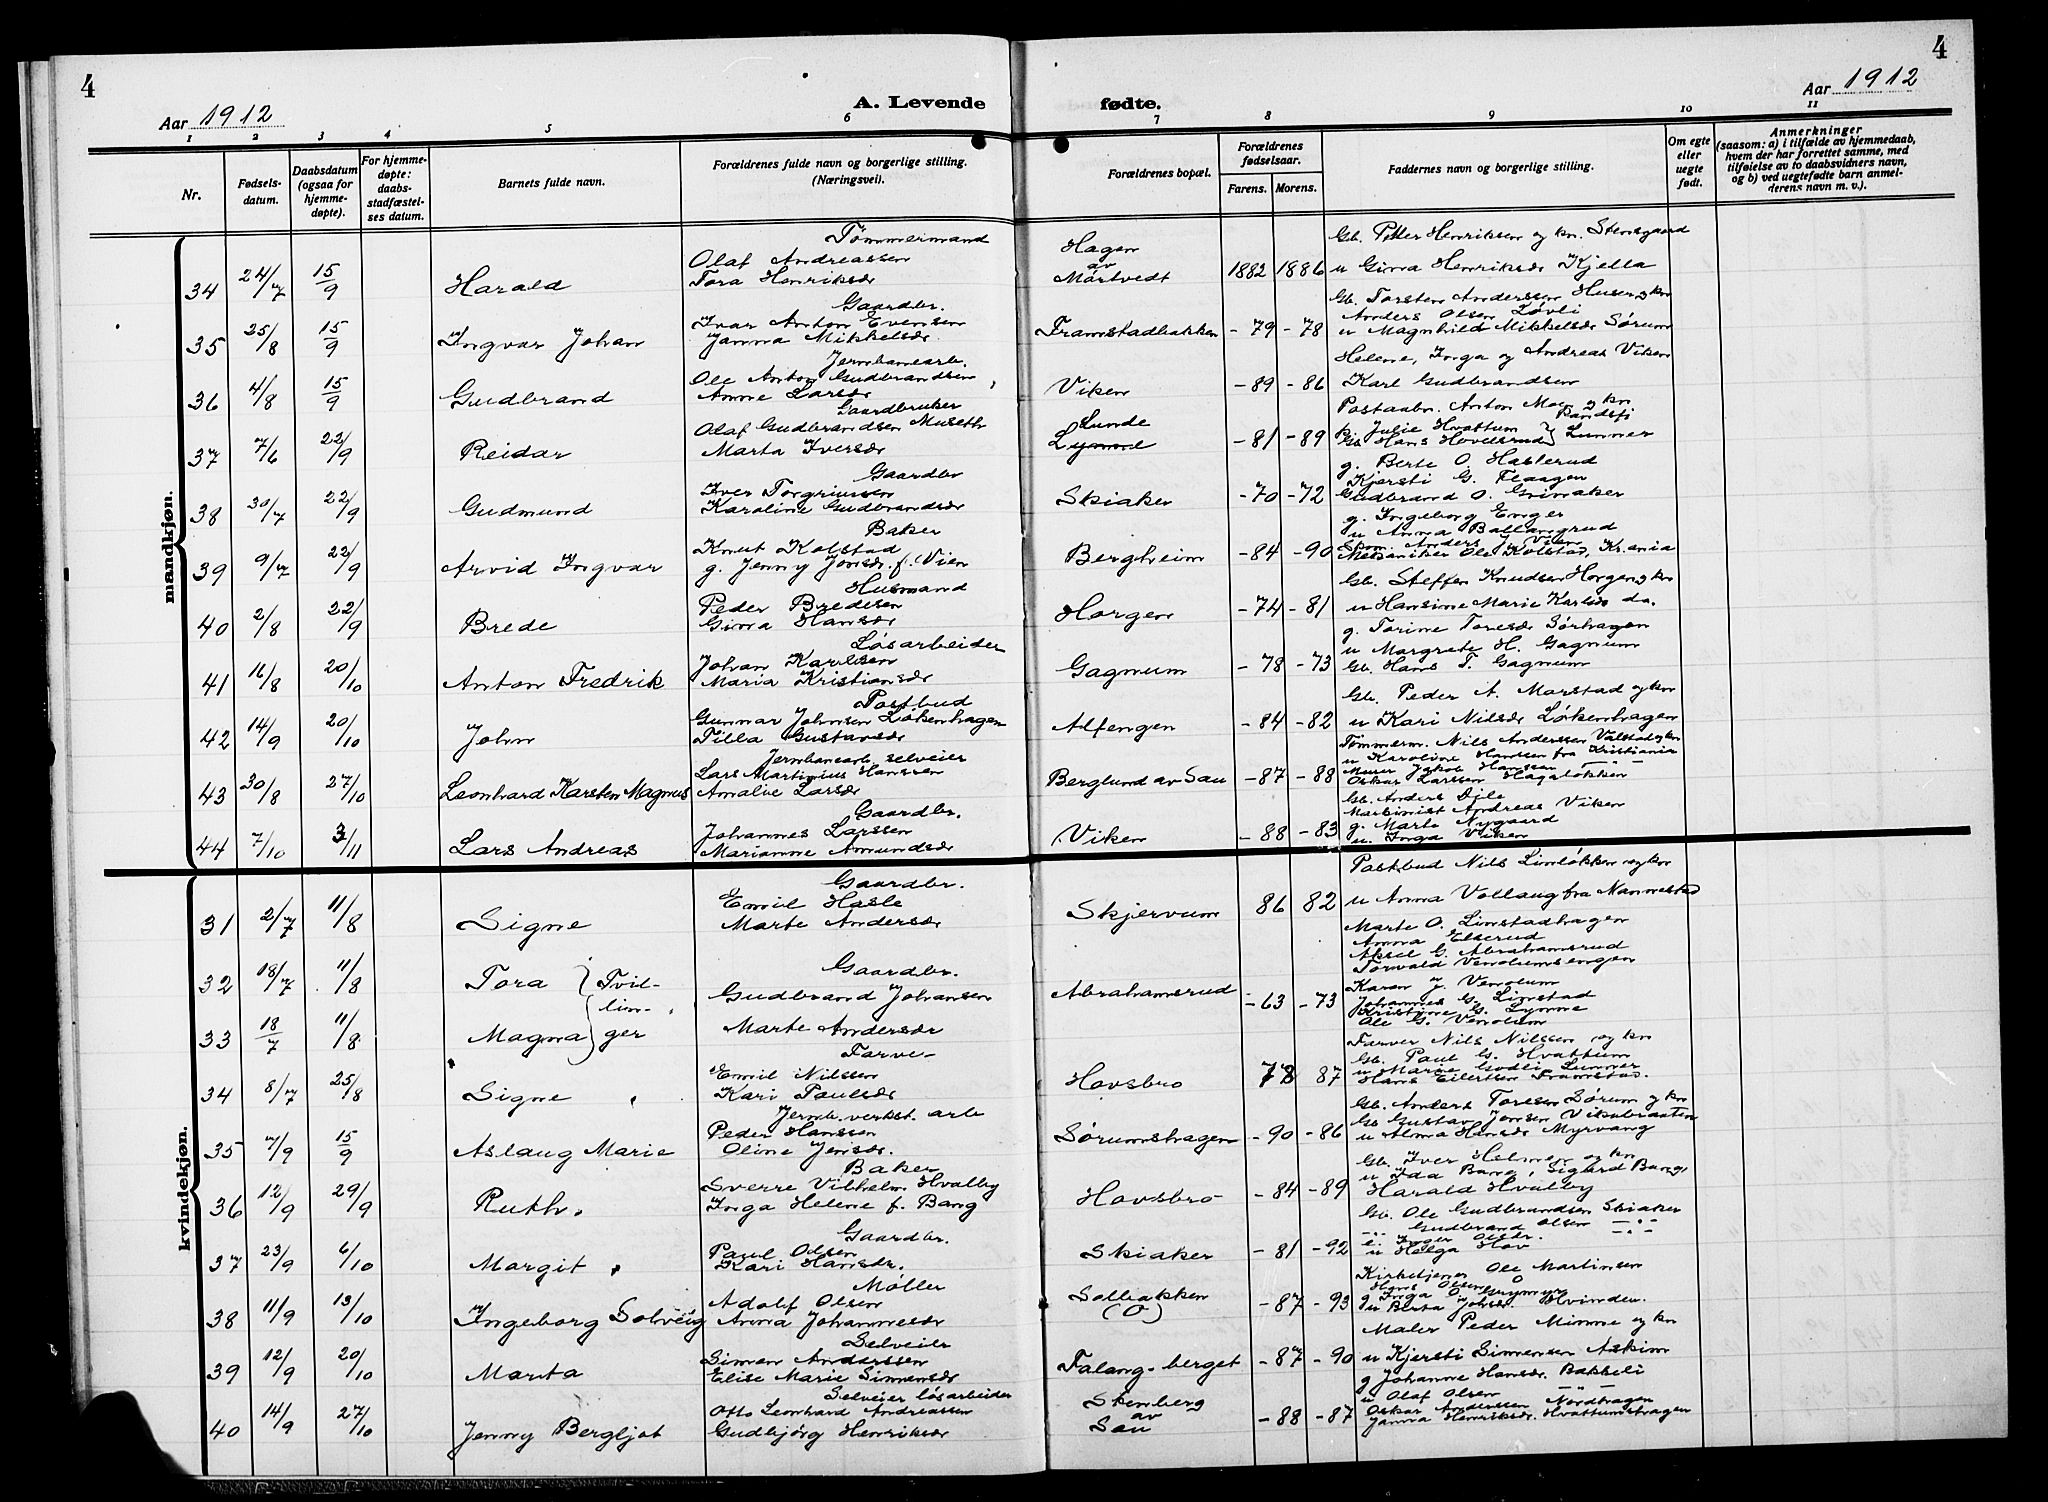 4
4
Aar 1912
A. Levende fødte.
Aar 1912
1 2 3 4 5 6 7 8 9 10 11
Nr.
Fødsels-
datum.
Daabsdatum
(ogsaa for
hjemme-
døpte).
For hjemme-
døpte:
daabs-
stadfæstel-
ses datum.
Barnets fulde navn.
Forældrenes fulde navn og borgerlige stilling.
(Næringsvei).
Forældrenes bopæl.
Forældrenes
fødselsaar.
Farens. Morens.
Faddernes navn og borgerlige stilling.
Om egte
eller
uegte
født.
Anmerkninger
(saasom: a) i tilfælde av hjemmedaab,
hvem der har forrettet samme, med
tilføielse av to daabsvidners navn,
og b) ved uegtefødte barn anmel-
derens navn m. v.).
mandkjøn.
34 24/7 15/9 Harald
Tømmermand
Olaf Andreassen
Tora Henriksdr
Hagen
av
Mørtvedt
1882 1886
Gb. Petter Henriksen og kn. Stensgaard
u Gina Henriksdr Kjella
35 25/8 15/9 Ingvar Johan
Gaardbr.
Ivar Anton Evensen
Janna Mikkelsdr
Framstadbakken -79 -78
Gb. Torsten Anderssen Huser og kn
Anders Olsen Løvli
u Magnhild Mikkelsdr Sørum
36 4/8 15/9 Gudbrand
Jernbanearb.
Ole Anton Gudbrandsen
Anne Larsdr
Viken -89 -86
Helene, Inga og Andreas Viken
Karl Gudbrandsen
37 7/6 22/9 Reidar
Gaardbruker
Olaf Gudbrandsen Museth
Marta Iversdr
Lunde
-81 -89
Postaabn. Anton Moen og kn
Randsfj
Julie Hvattum
Gb. Hans Hovelsrud } Lunner
38 30/7 22/9 Gudmund
Gaardbr
Iver Torgriussen
Karoline Gudbrandsdr
Skiaker -70 -72
g. Berte O. Haslerud
Kjersti G. Flaagen
Gudbrand O. Grinaker
39 9/7 22/9 Arvid Ingvar
Baker
Knut Kolstad
g. Jenny Jonsdr. f. Vien
Bergheim -84 -90
g. Ingeborg Enger
u Anna Ballangrud
Anders J Vien
Mekaniker Ole Kolstad, Kr.ania
40 2/8 22/9 Brede
Husmand
Peder Bredesen
Gina Hansdr
Horgen -74 -81
Gb. Steffen Knudsen Horgen og kn
u Hansine Marie Karlsdr do.
41 16/8 20/10 Anton Fredrik
Løsarbeider
Johan Karlsen
Maria Kristiansdr
Gagnum -78 -73
g. Torine Toresdr Sørhagen
u Margrete H. Gagnum
Gb. Hans T. Gagnum
42 14/9 20/10 John
Postbud
Gunnar Johnsen Løkenhagen
Tilla Gustavsdr
Alfengen -84 -82
Gb. Peder A. Morstad og kn
u Kari Nilsdr Løkenhagen
43 30/8 27/10 Leonhard Karsten Magnus
Jernbanearb. selveier
Lars Martinius Hanssen
Amalie Larsdr
Berglund av Sau -87 -88
Tømmerm. Nils Anderssen Valstad og kn
u Karoline Hanssen fra Kristiania
Murer Jakob Hanssen
Oskar Larssen Hagaløkken
44 7/10 3/11 Lars Andreas
Gaardbr.
Johannes Larssen
Marianne Amundsdr
Viken -88 -83
Gb. Anders Dele
Maskinist Andreas Viken
g. Marte Nygaard
u. Inga Viken
kvindekjøn.
31 2/7 11/8 Signe
Gaardbr.
Emil Hasle
Marte Andersdr
Skjervum 86 82
Postbud Nils Linløkken og kn
u Anna Vollaug fra Nannestad
32 18/7 11/8 Tora
33 18/7 11/8 Magna
Tvil-
lin-
ger
Gaardbr.
Gudbrand Johansen
Marte Andersdr
Abrahamsrud -63 -73
Marte O. Linstadhagen
Anna Elserud
Aksel G. Abrahamsrud
Torvald Venolumsengen
Karen J. Venolum
Johannes G. Linstad
Kristine G. Lynne
Ole G. Venolum
34 8/7 25/8 Signe
Farve-
Emil Nilssen
Kari Paulsdr
Hovsbro 78 87
Farver Nils Nilssen og kn
Gb. Paul G. Hvattum
u Marie Godli Lunner
Hans Eilertsen Framstad.
35 7/9 15/9 Aslaug Marie
Jernb. verkst. arb
Peder Hanssen
Oline Jensdr.
Sørumshagen -90 -86
Gb. Anders Toresen Sørum og kn
Gb Gustav Jonsen Vikubraaten
u Alma Hansdr Myrvang
36 12/9 29/9 Ruth.
Baker
Sverre Vilhelm Hvalby
Inga Helene f. Bang
Hovsbro -84 -89
Gb. Iver Helmen og kn
u Ida Bang, Sigurd Bang,
Harald Hvalby
37 23/9 6/10 Margit
Gaardbr.
Paul Olsen
Kari Hansdr.
Skiaker -81 -92
Gb. Ole Gudbrandsen Skiaker
Gudbrand Olsen
e. Inger Olsdr.
u Helga Hov
38 11/9 13/10 Ingeborg Solveig
Møller
Adolf Olsen
Anna Johannesdr
Solbakken
(O)
-87 -93
Kirketjener Ole Martinsen
Hans Olsen O
g Inga O. Grymyr
u Berta Johsdr. Hvinden.
39 12/9 20/10 Marta
Selveier
Simen Anderssen
Elise Marie Simensdr
Falang-berget -87 -90
Maler Peder Minne og kn
u Kjersti Simensen Askim
g Johanne Hansdr. Bakkeli
40 14/9 27/10 Jenny Bergljot
Selveier løsarbeider
Otto Leonhard Andreassen
Gudbjørg Henriksdr
Stenberg
av
Sau
-88 -87
u Olaf Olsen
Oskar Anderssen Nordhagen
Janna Henriksdr. Hvattumshagen